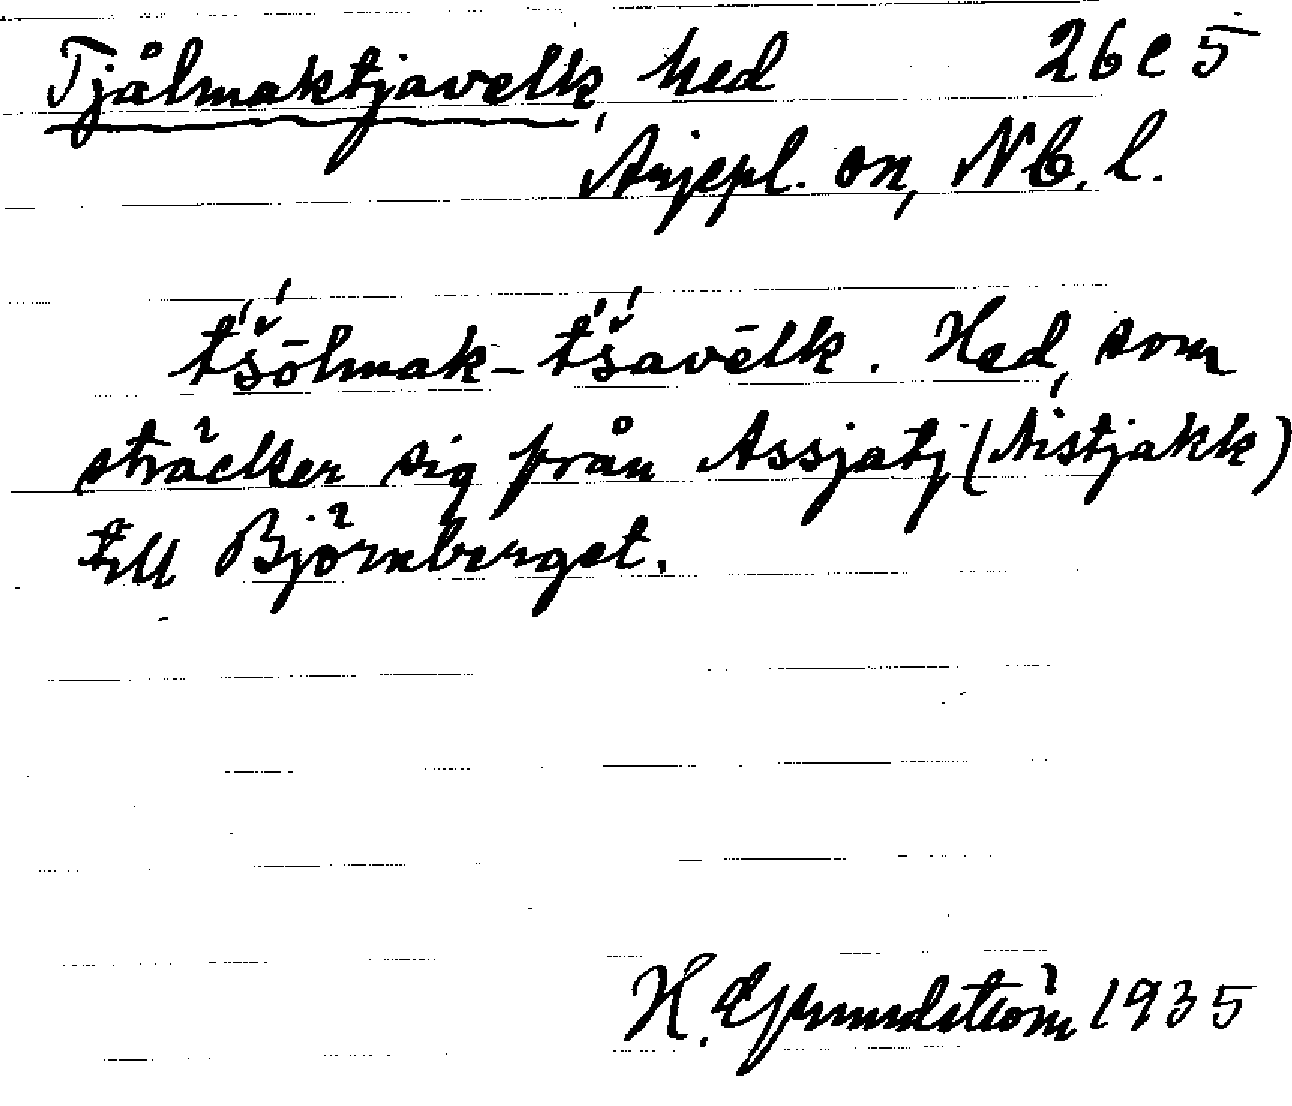 Tjålmaktjavelk, hed 26 e 5
Arjepl. sn, Nb. l.
t́š́ōlmak-t́š́avēlk. Hed, som
sträcker sig från Assjatj (Aistjakk)
till Björnberget.
H. Grundström 1935